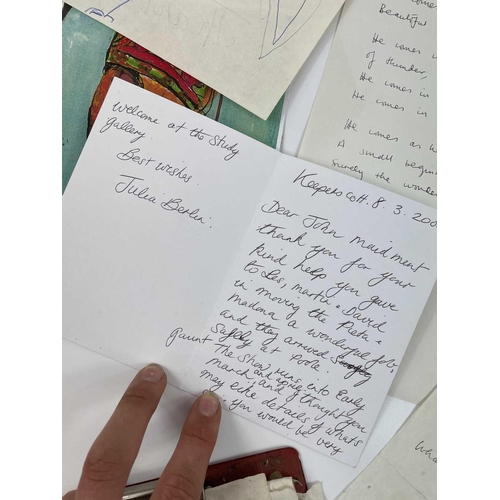 comes
Beautiful
He comes
of thunder,
He comes in
He comes in
He comes as
A small
Surely the wonder
Welcome at the Study
gallery
Best wishes.
Julia Berlin.
Keepers Cott. 8. 3. 200
Dear John Maidment
thank you for your
kind help you gave
to Les, Martin & David
in moving the Pieta &
madona a wonderful job,
and they arrived
Safely at Poole.
The Show runs into Early
March and and I thought you
may like details of whats
you would be very